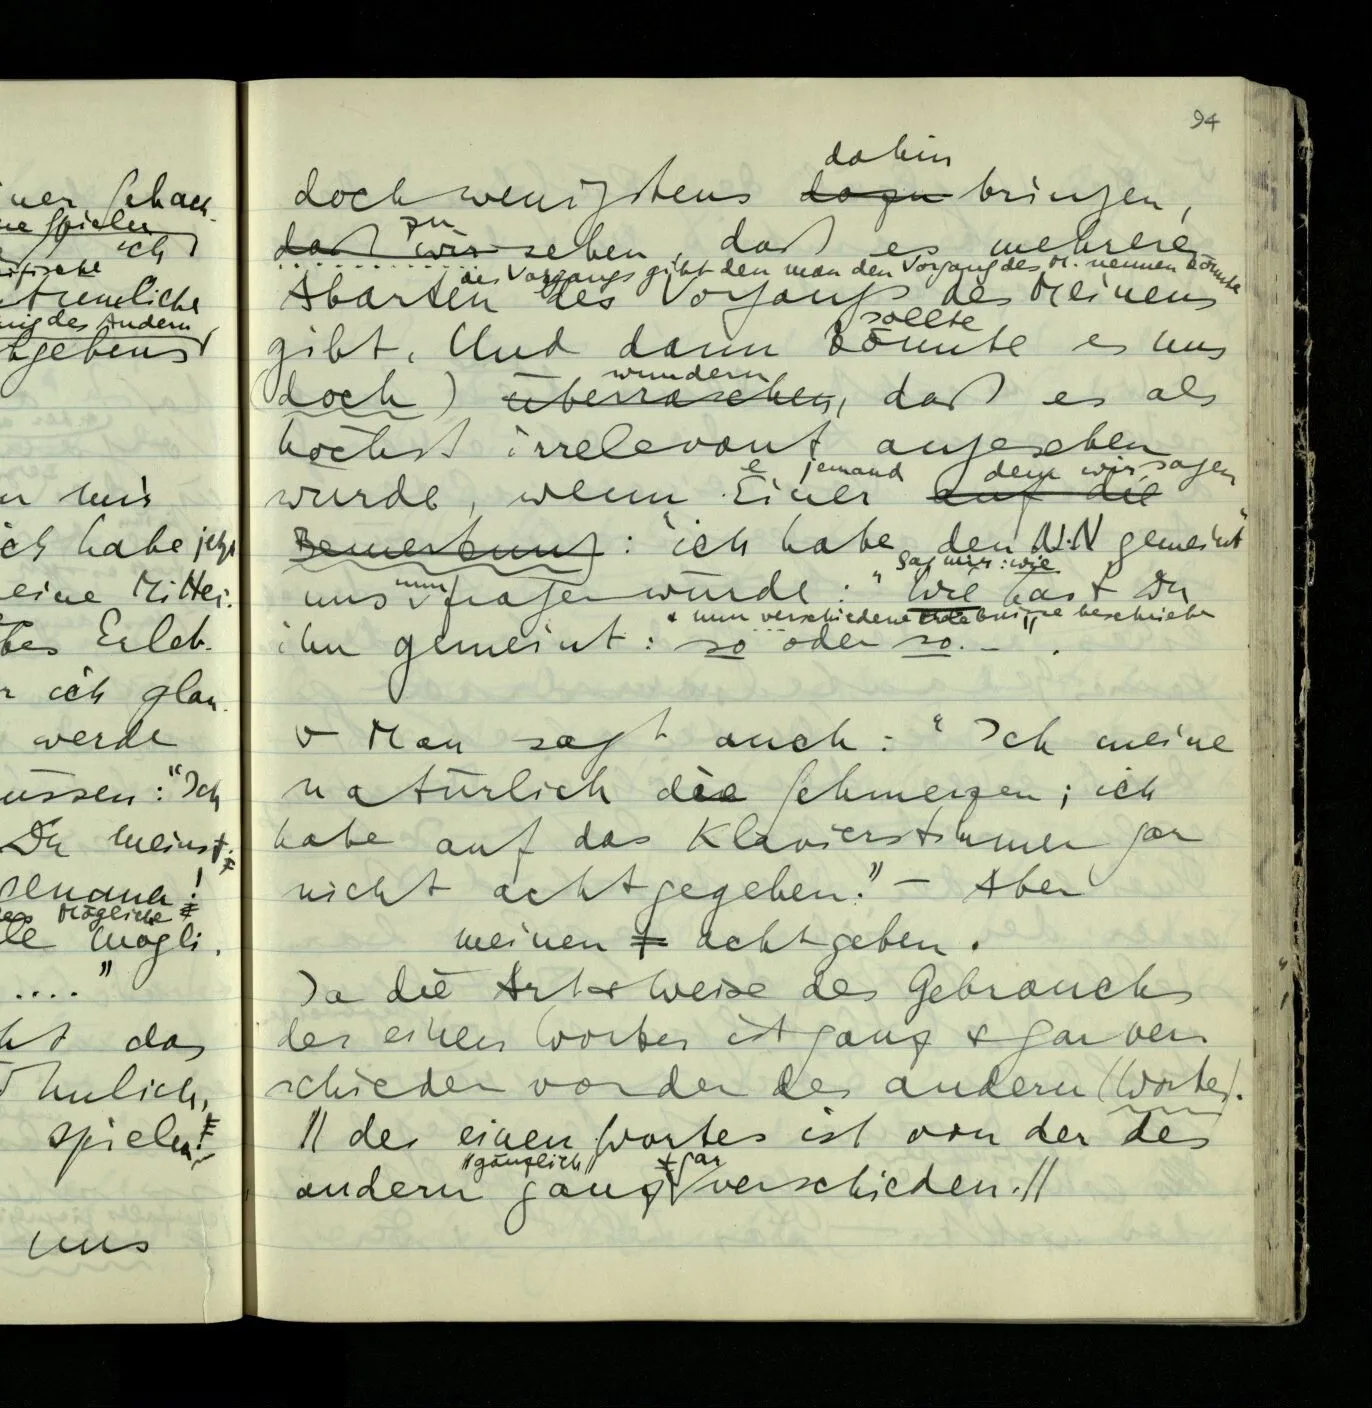 94
ner Schach-
ne Spieler
ich
ifische
tümliche
des Andern
gebens
n mir
ich habe jetzt
eine Mittei-
tes Erleb-
r ich glau-
werde
üssen: "Ich
Du meinst
jemand!
Mögliche
le mögli-
...."
ht das
ähnlich,
spielen
uns
dahin
doch wenigstens dazu bringen,
zu
daß wir sehen, daß es mehrere
des Vorgangs gibt den man den Vorgang des M. nennen könnte
Abarten des Vorgangs des Meinens
sollte
gibt. Und dann könnte es uns
wundern
(doch) überraschen, daß es als
höchst irrelevant angesehen
e jemand dem wir sagen
wurde, wenn Einer auf die
Bemerkung: "ich habe den N.N gemeint"
nun sag mir: wie
uns fragen würde: "Wie hast Du
& nun verschiedene Erlebnisse beschriebe
ihn gemeint: so oder so. –
v Man sagt auch: "Ich meine
natürlich die Schmerzen; ich
habe auf das Klavierstimmen gar
nicht achtgegeben." – Aber
meinen ≠ achtgeben.
Ja die Art & Weise des Gebrauchs
des einen Wortes ist ganz & gar ver
schieden von der des andern (Wortes).
// des einen Wortes ist von der des
//gänzlich// & gar
andern ganz verschieden.//